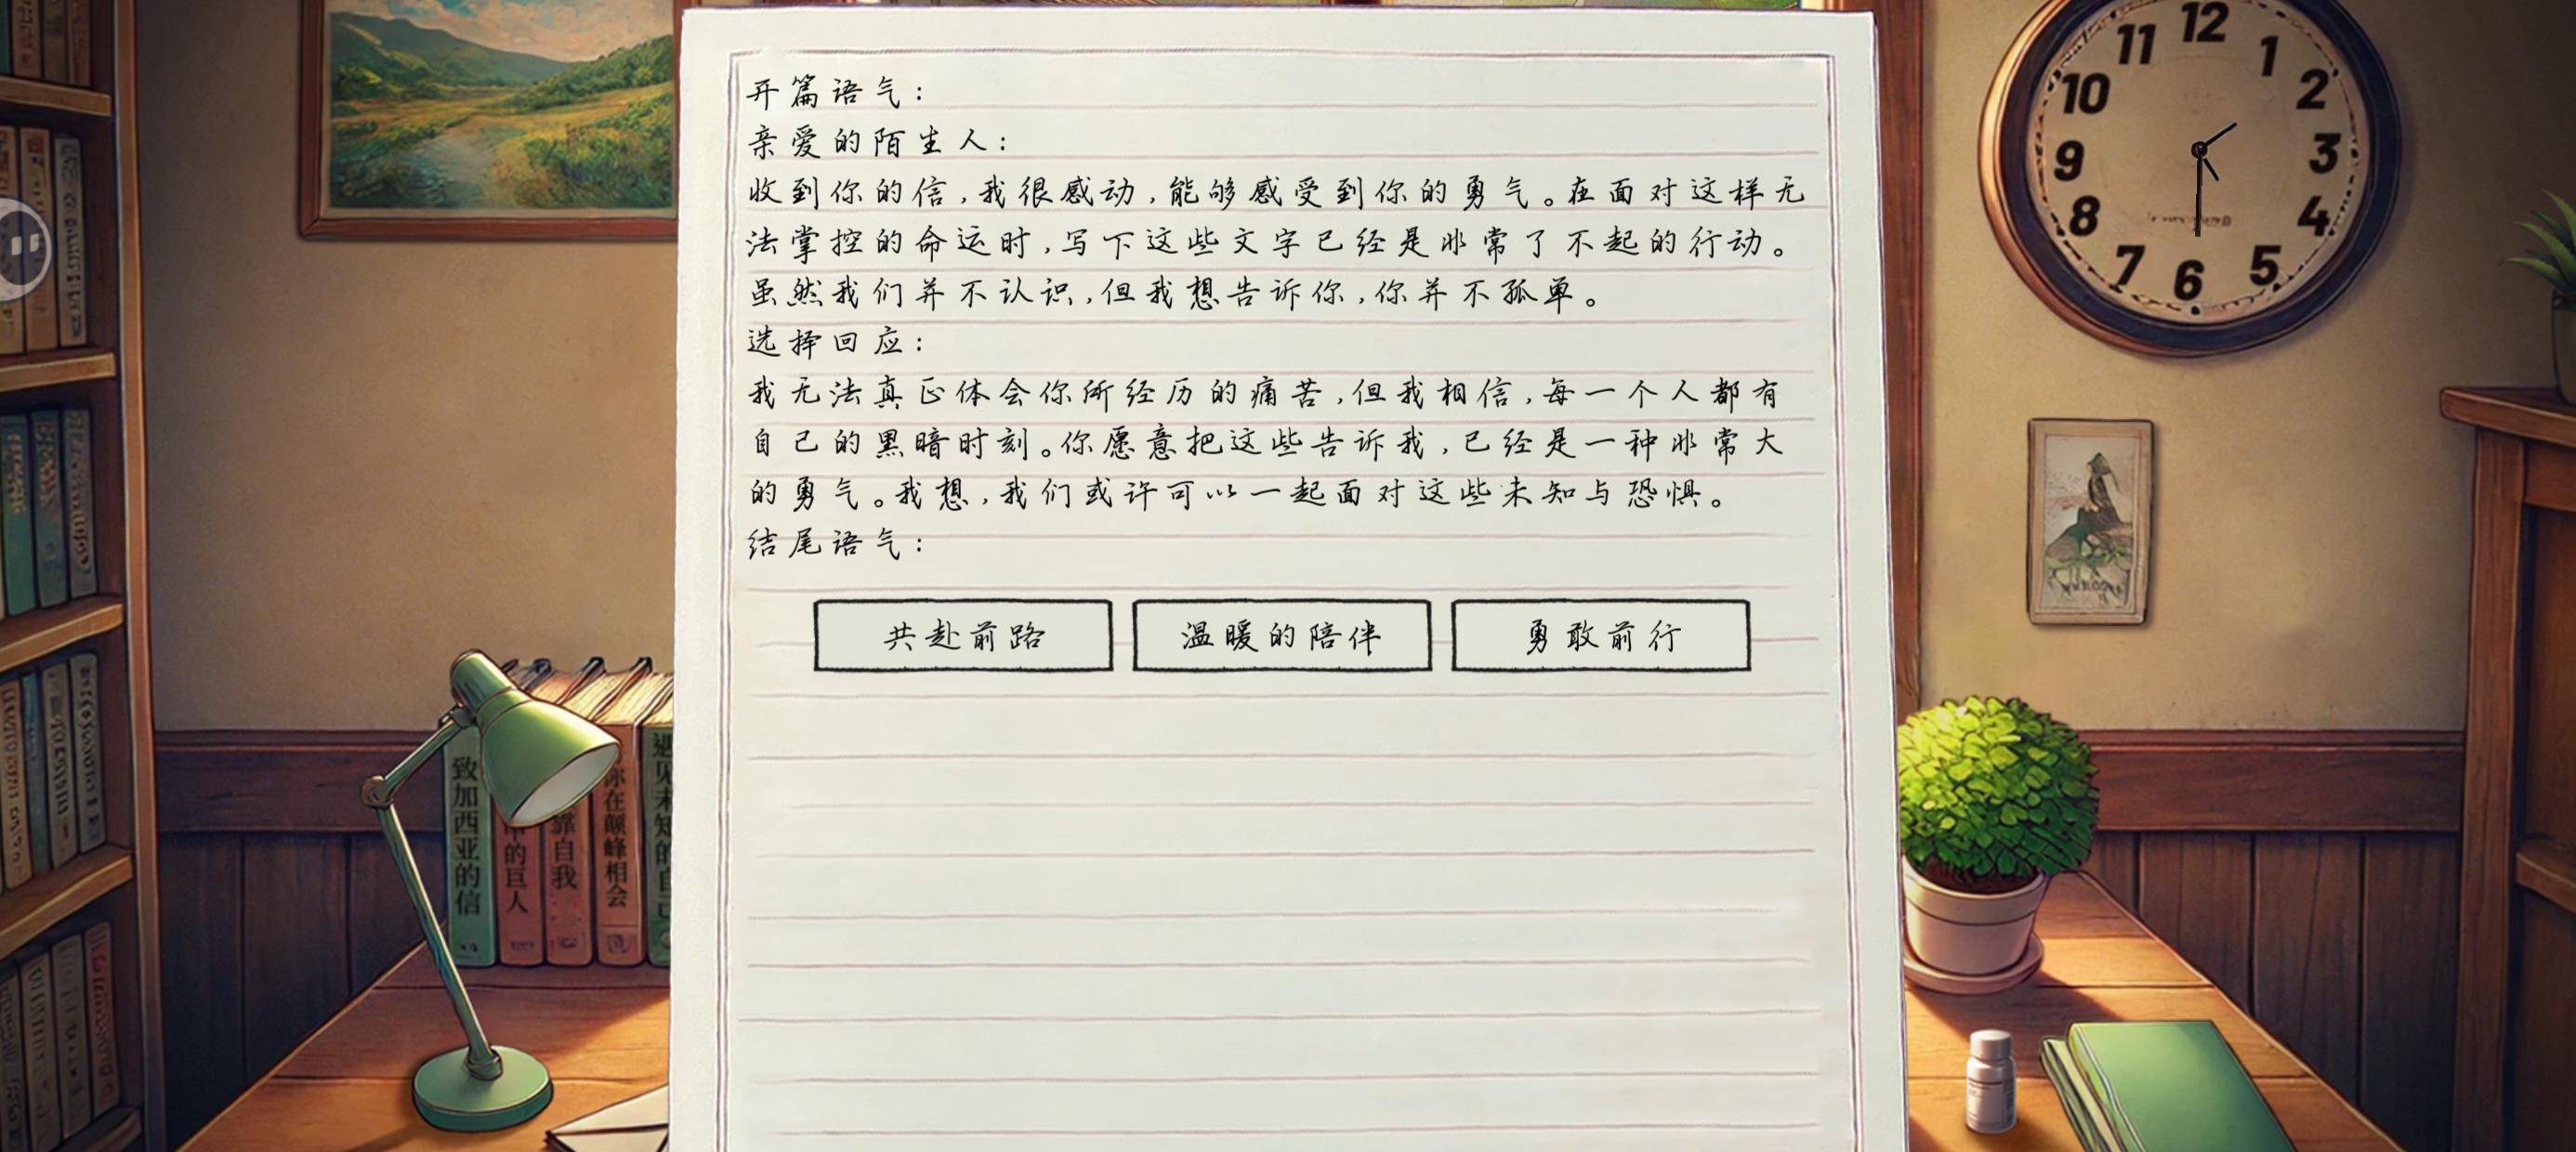 开篇语气：
亲爱的陌生人：
收到你的信，我很感动，能够感受到你的勇气。在面对这样无
法掌控的命运时，写下这些文字已经是非常了不起的行动。
虽然我们并不认识，但我想告诉你，你并不孤单。
选择回应：
我无法真正体会你所经历的痛苦，但我相信，每一个人都有
自己的黑暗时刻。你愿意把这些告诉我，已经是一种非常大
的勇气。我想，我们或许可以一起面对这些未知与恐惧。
结尾语气：
共赴前路
温暖的陪伴
勇敢前行
12
1
2
3
4
5
6
7
8
9
10
11
致加西亚的信
的巨人
靠自我
你在巅峰相会
遇见未知的自己